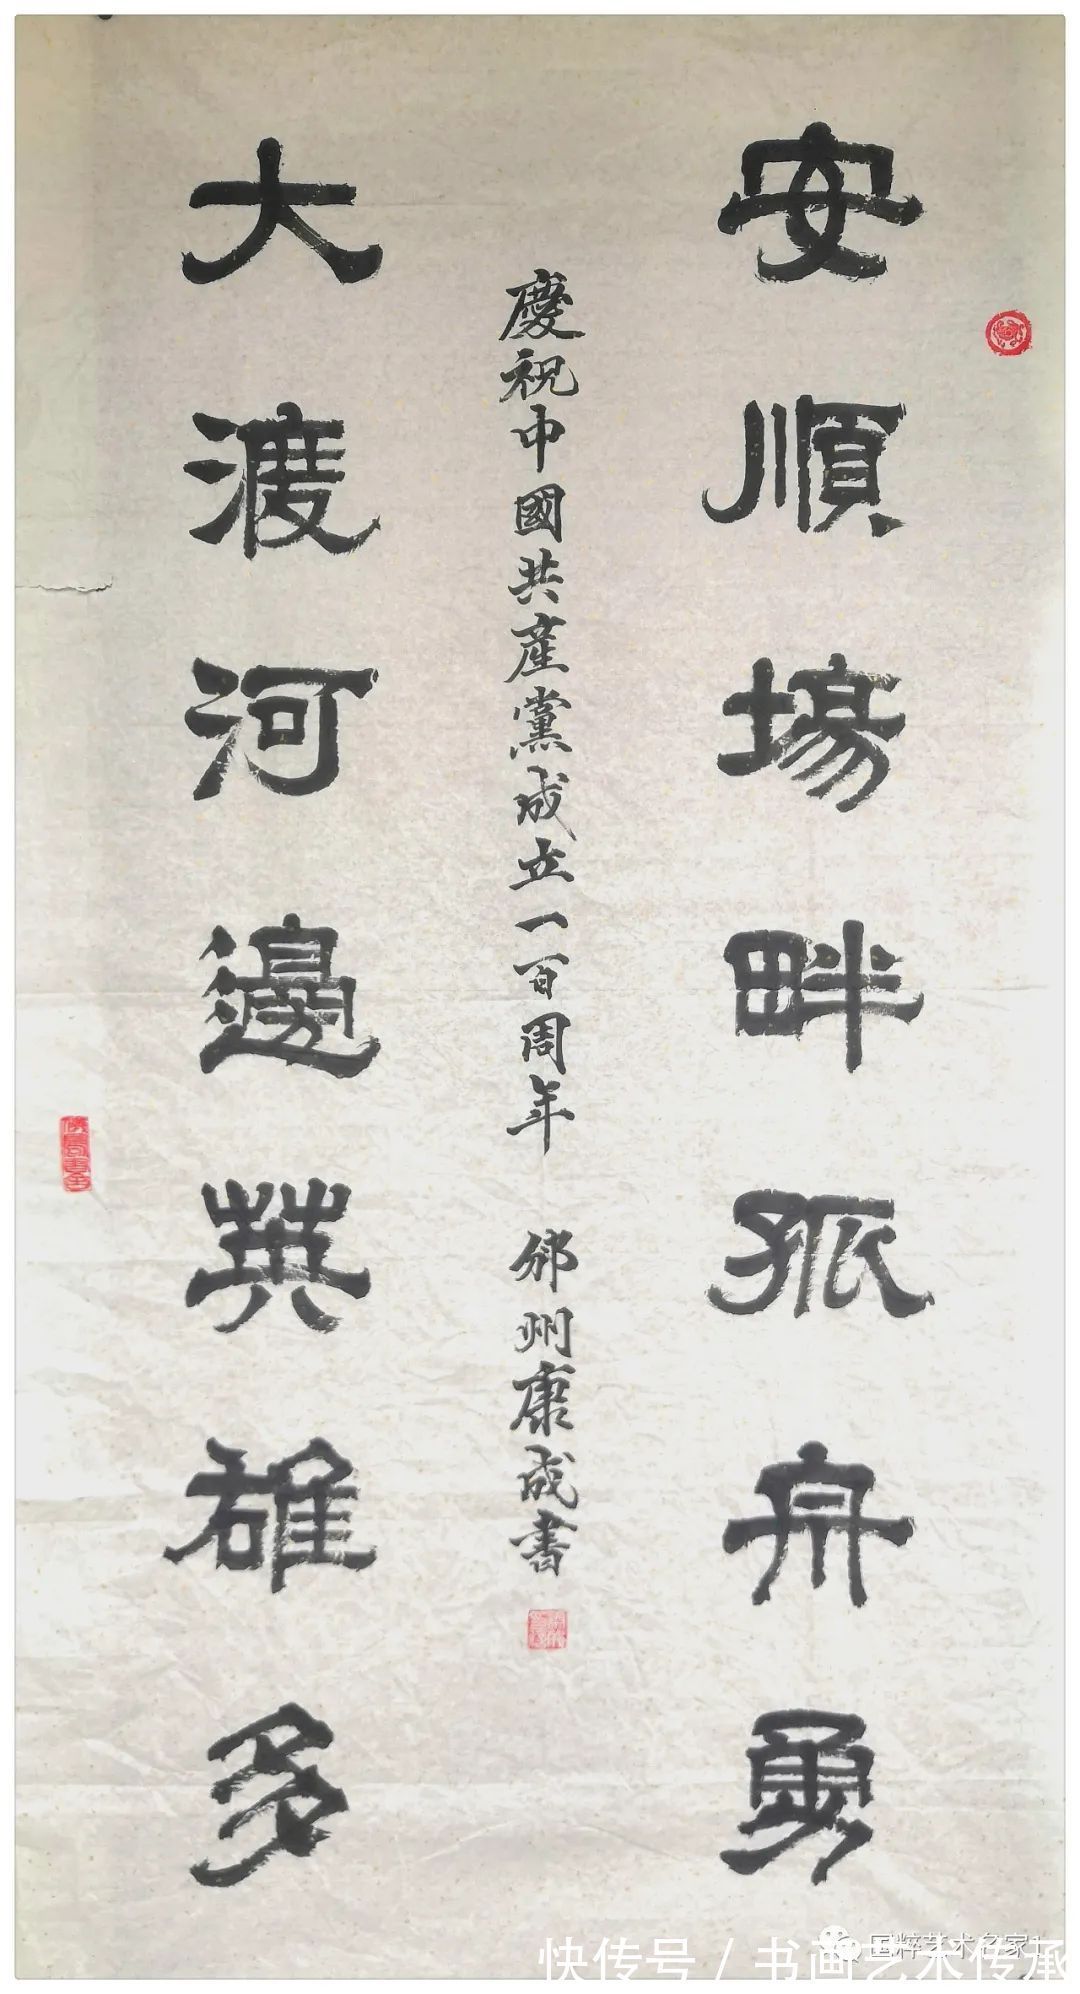 安順場畔孤舟勇
慶祝中國共產黨成立一百周年 邠州康成書
大渡河邊英雄多
国粹艺术名家
快传号 / 书画艺术传承